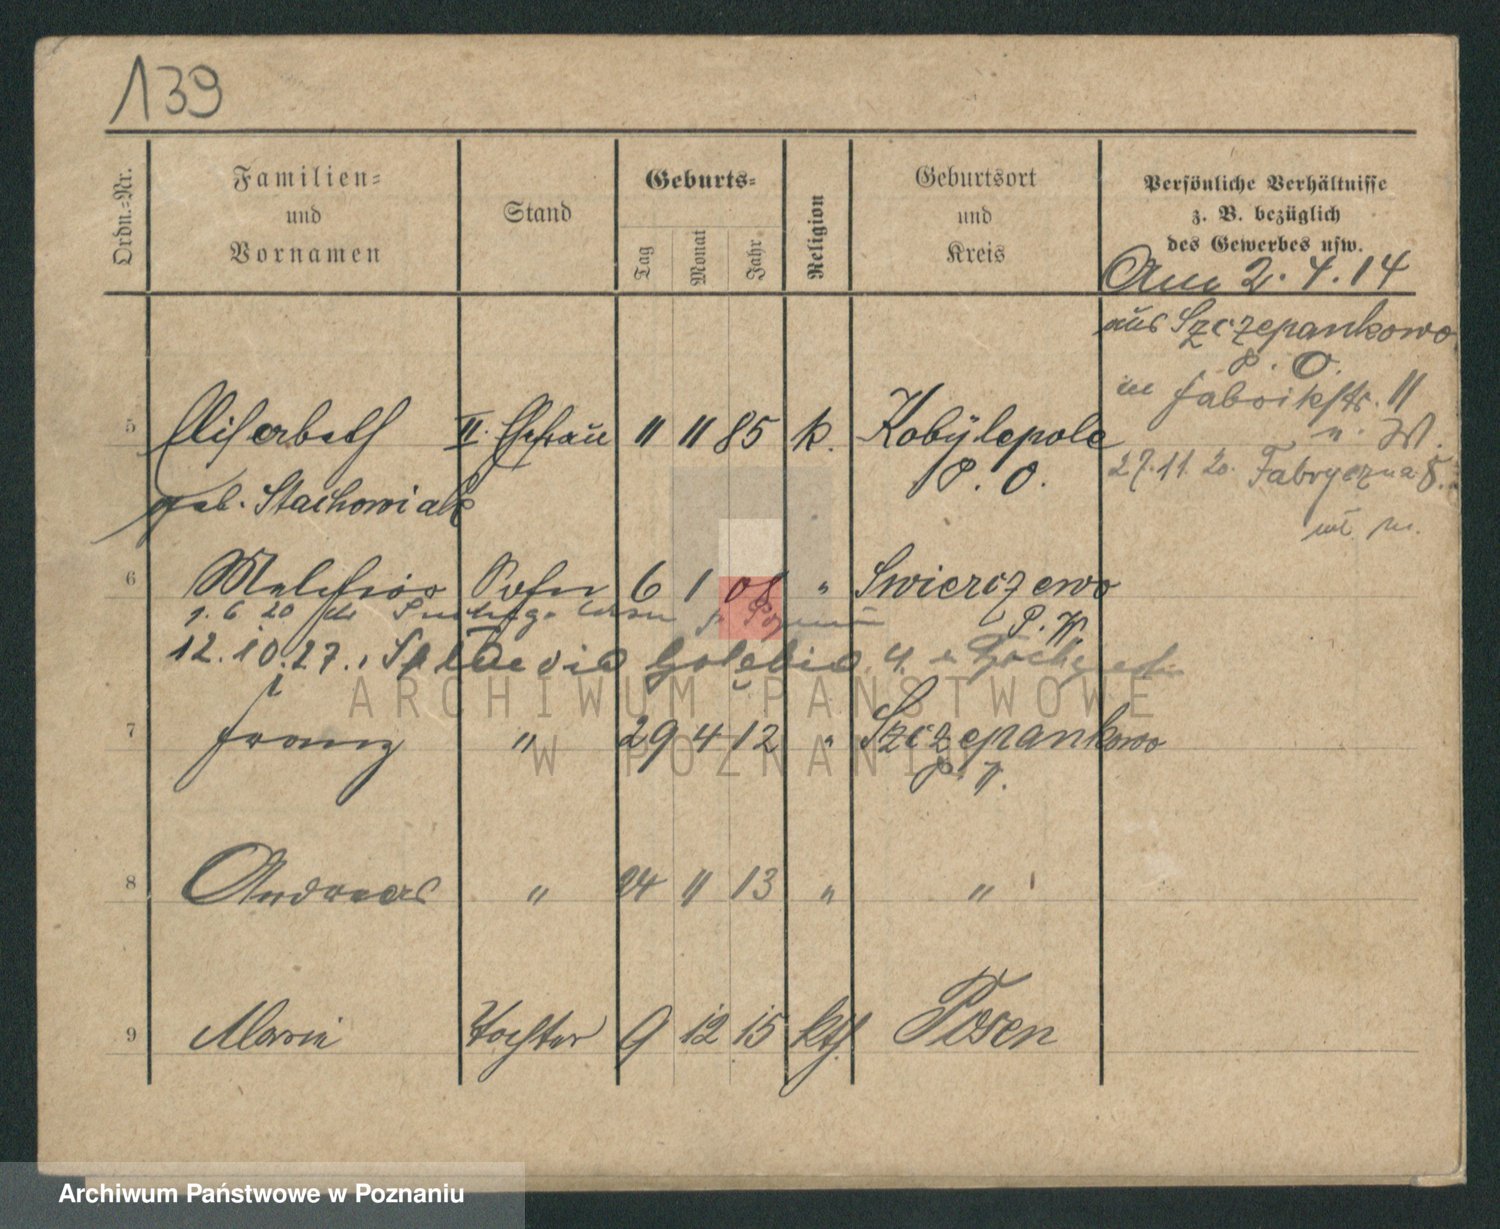 139
Ordn.-Nr.
Familien-
und
Vornamen
Stand
Geburts-
Tag
Monat
Jahr
Religion
Geburtsort
und
Kreis
Persönliche Verhältnisse
z. B. bezüglich
des Gewerbes usw.
2. 4. 14
aus Szczepankowo
P. O.
in Fabrikstr. 11
27.11.20. Fabryczna
5 Elisabeth II. Ehefrau 11 11 85 k. Kobylepole
geb. Stachowiak P. O.
6 Melchior Sohn 6 1 08 " Swierczewo
P. W.
12.10.27.
7 Franz " 29 4 12 " Szczepankowo
8 Andreas " 24 11 13 " "
9 Marie Tochter 9 12 15 kth Posen
ARCHIWUM PAŃSTWOWE
W POZNANIU
Archiwum Państwowe w Poznaniu